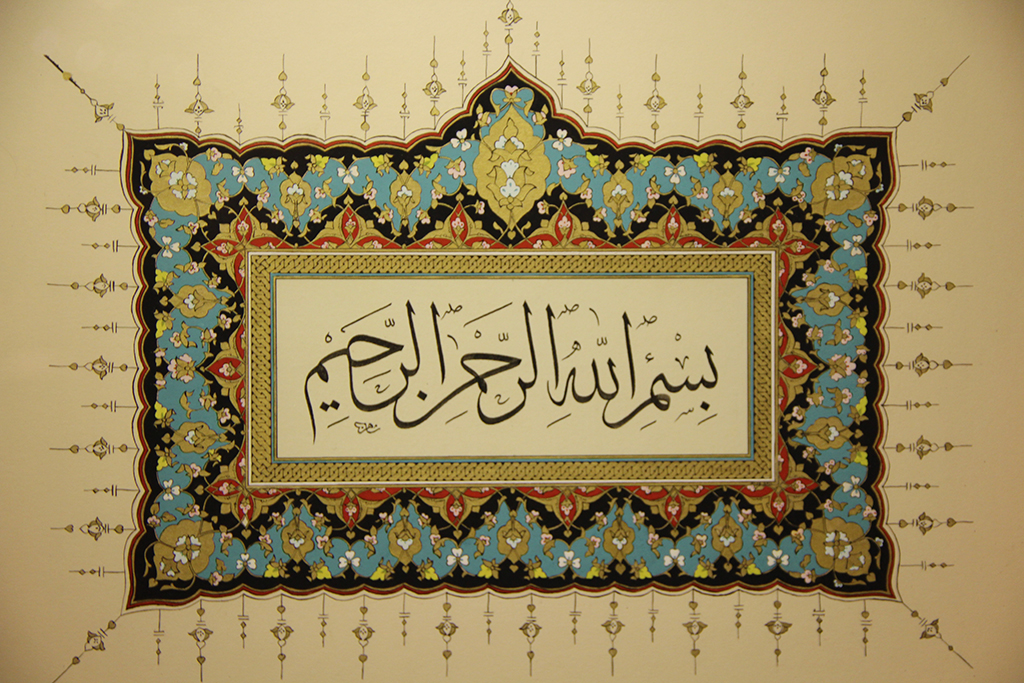 بِسْمِ اللّٰهِ الرَّحْمٰنِ الرَّحِيْمِ